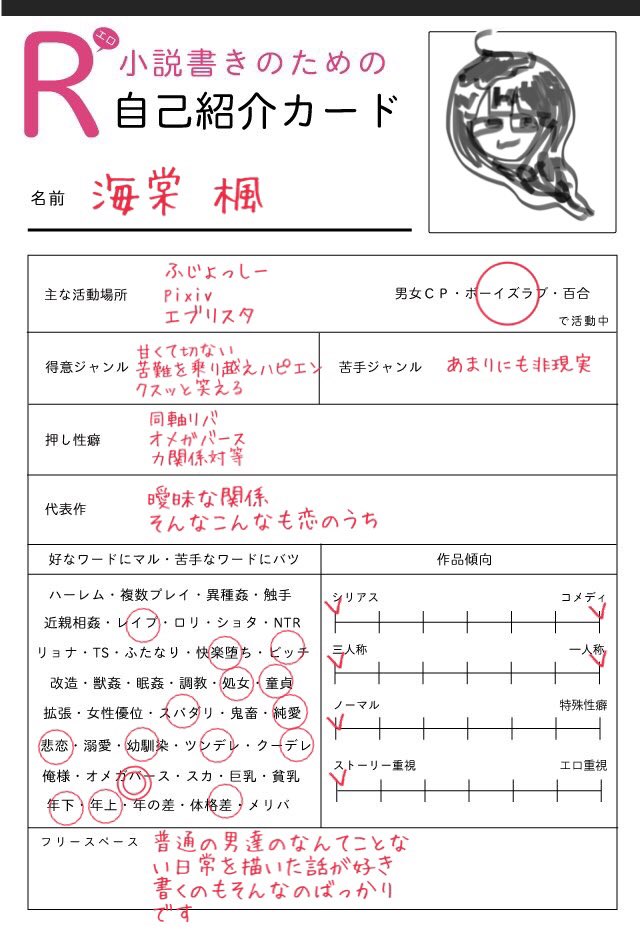 R
エロ
小説書きのための
自己紹介カード
名前 海棠 楓
主な活動場所
ふじょっしー
pixiv
エブリスタ
男女ＣＰ・ボーイズラブ・百合
で活動中
得意ジャンル
甘くて切ない
苦難を乗り越えハピエン
クスッと笑える
苦手ジャンル あまりにも非現実
押し性癖
同軸リバ
オメガバース
力関係対等
代表作
曖昧な関係
そんなこんなも恋のうち
好なワードにマル・苦手なワードにバツ
ハーレム・複数プレイ・異種姦・触手
近親相姦・レイプ・ロリ・ショタ・NTR
リョナ・TS・ふたなり・快楽堕ち・ビッチ
改造・獣姦・眠姦・調教・処女・童貞
拡張・女性優位・スパダリ・鬼畜・純愛
悲恋・溺愛・幼馴染・ツンデレ・クーデレ
俺様・オメガバース・スカ・巨乳・貧乳
年下・年上・年の差・体格差・メリバ
作品傾向
シリアス コメディ
三人称 一人称
ノーマル 特殊性癖
ストーリー重視 エロ重視
フリースペース
普通の男達のなんてことな
い日常を描いた話が好き
書くのもそんなのばっかり
です